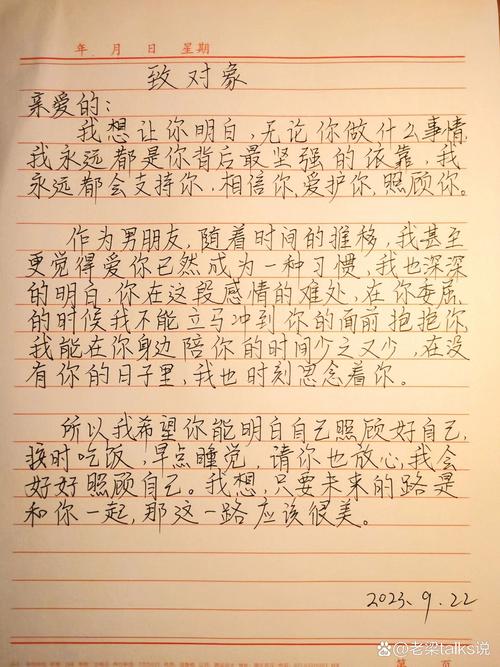 年 月 日 星期
致对象
亲爱的：
我想让你明白，无论你做什么事情，
我永远都是你背后最坚强的依靠，我
永远都会支持你，相信你，爱护你，照顾你。
作为男朋友，随着时间的推移，我甚至
更觉得爱你已然成为一种习惯，我也深深
的明白，你在这段感情的难处，在你委屈
的时候我不能立马冲到你的面前抱抱你，
我能在你身边陪你的时间少之又少，在没
有你的日子里，我也时刻思念着你。
所以我希望你能明白自己照顾好自己，
按时吃饭，早点睡觉，请你也放心，我会
好好照顾自己。我想，只要未来的路是
和你一起，那这一路应该很美。
2023.9.22
第 页
@老梁talks说